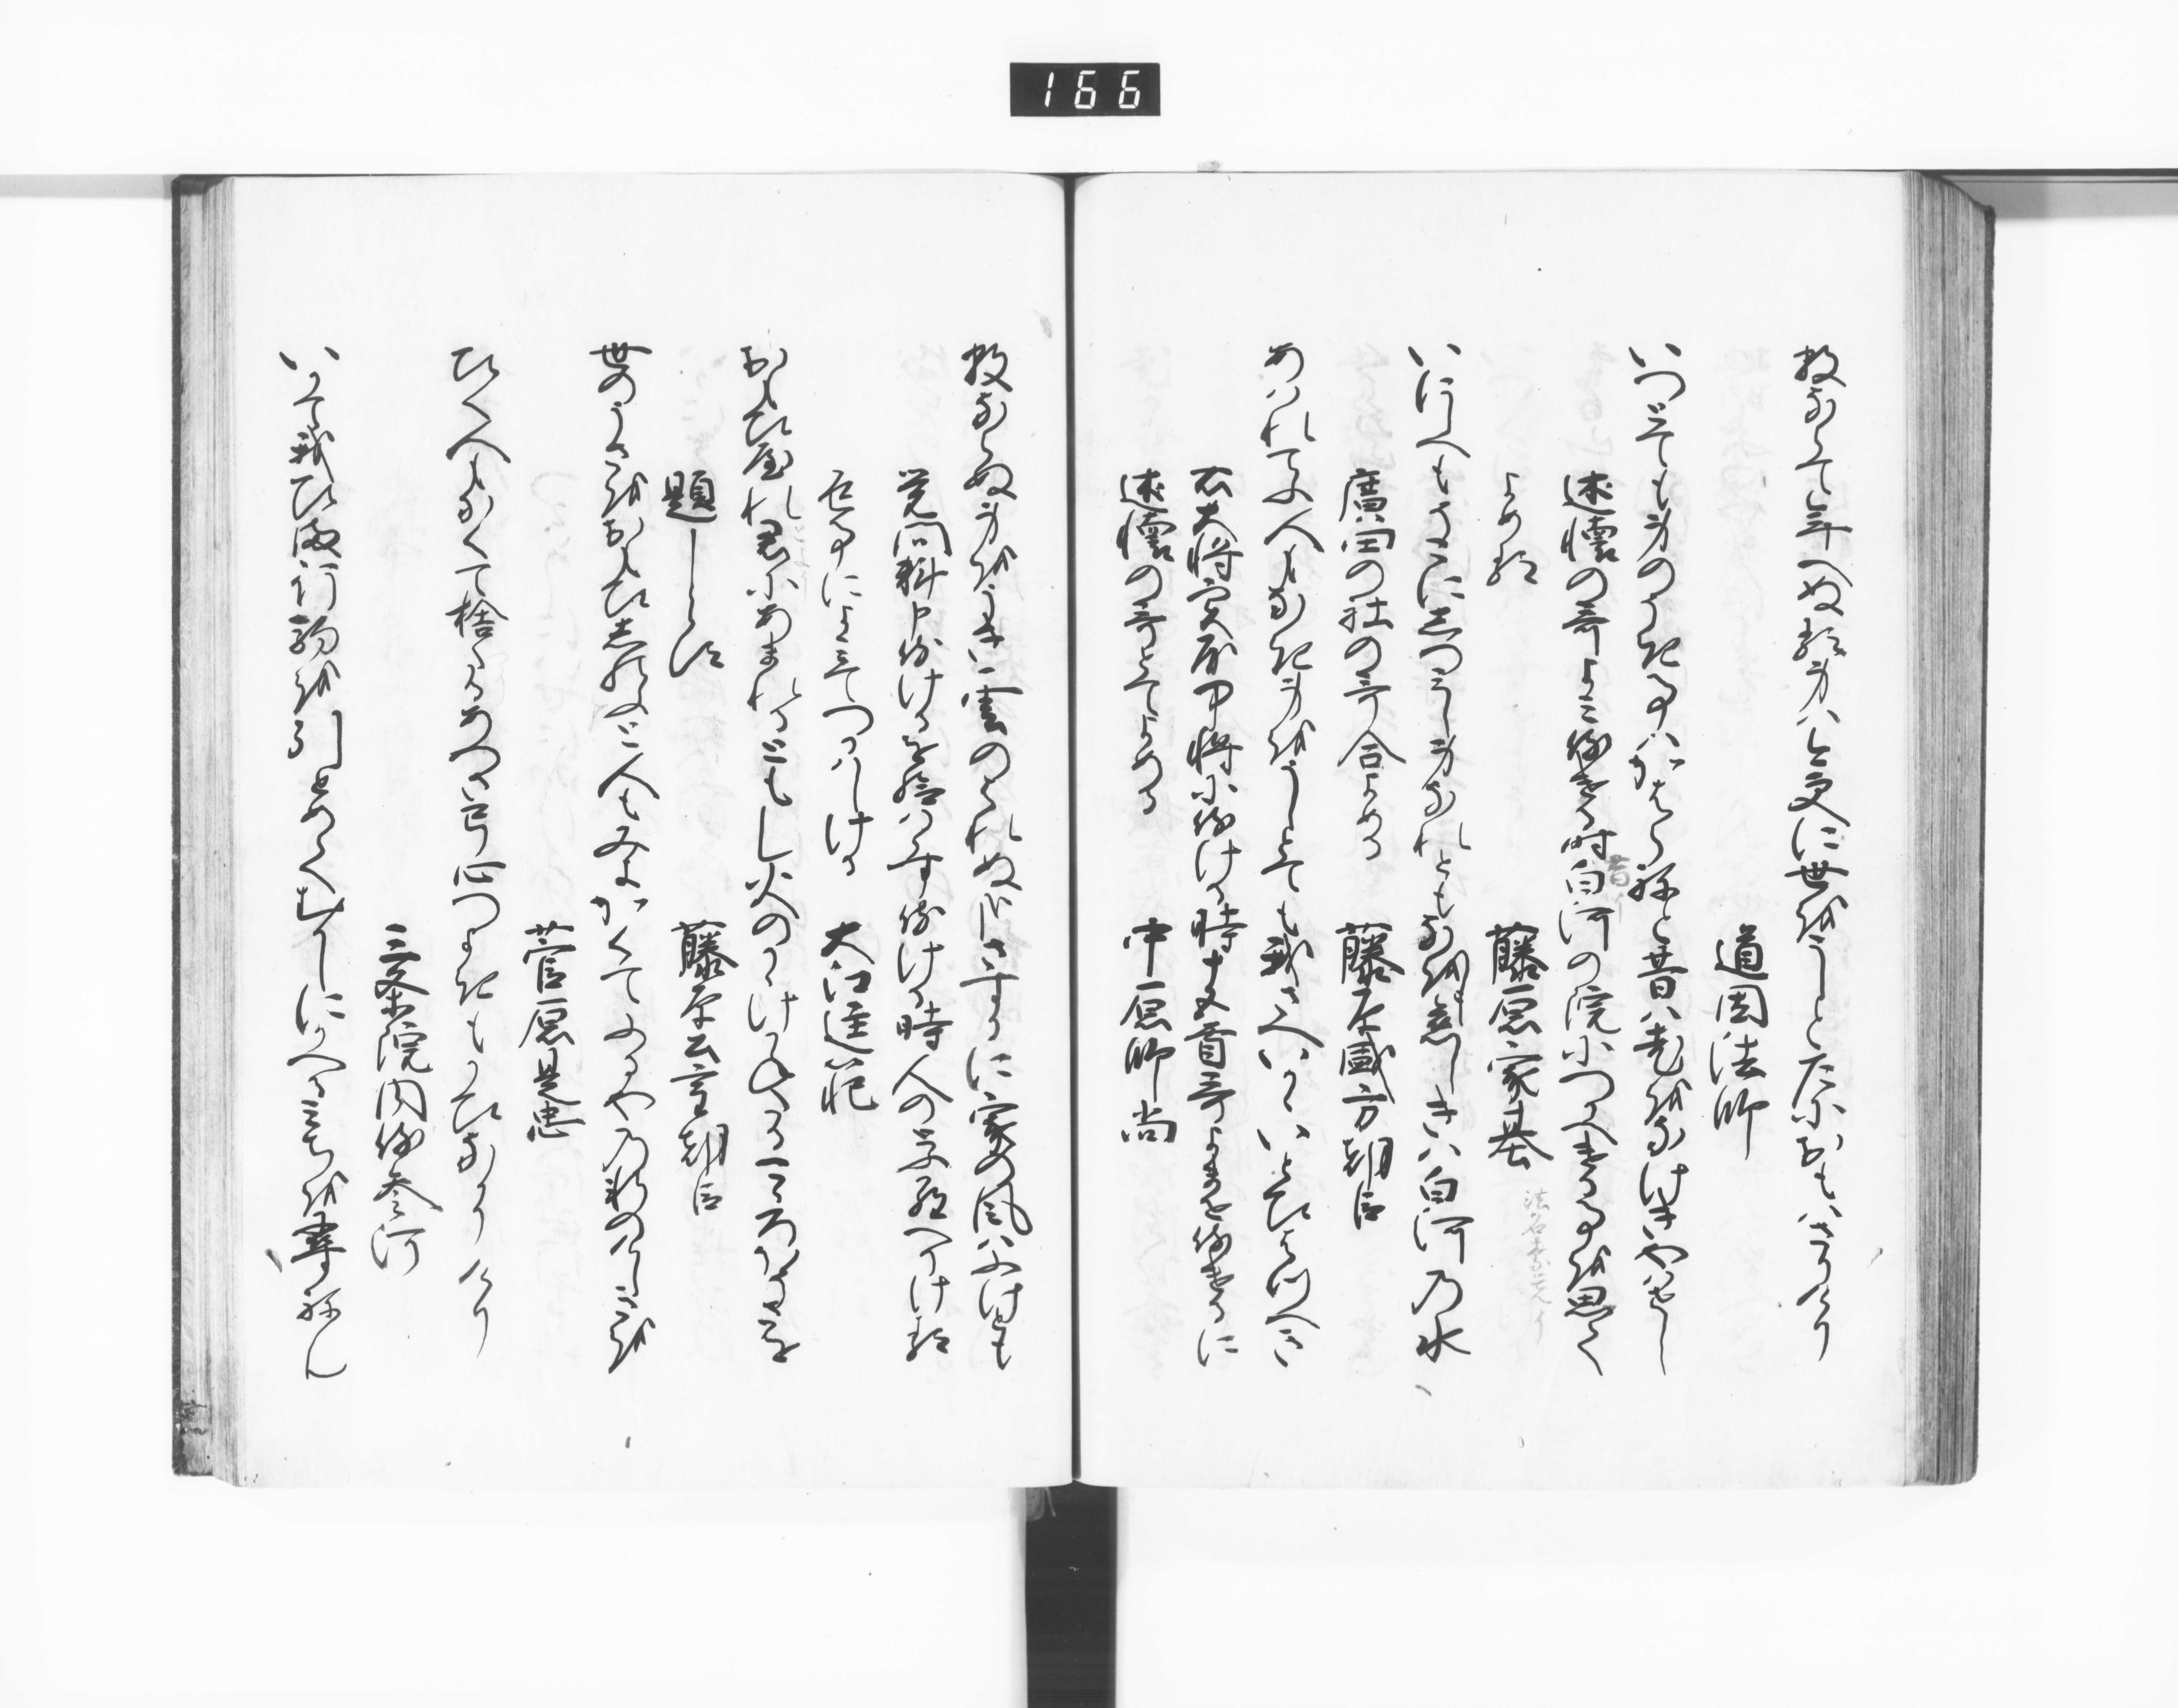 166
数ならて年へぬる身は今更に世をうしとたにおもはさりけり
道因法師
いつとても身のうき事はかはらねと昔は老をなけきやはせし
述懐の哥よみ侍ける時白河の院につかへける事を思て
よめる
藤原家基
いにしへもそこにしつみし身なれともなを恋しきは白河の水
廣田の社の哥合よめる
藤原盛方朝臣
あはれてふ人もなき身をうしとても我さへいかゝいとひはつへき
右大将実房中将に侍ける時十五首哥よませ侍けるに
述懐の哥とてよめる
中原師尚
数ならぬ身をうき雲のはれぬ哉さすかに家の風はふけとも
覚問料申侍けるを給はらす侍ける時人の<br>とへりける
大江匡範
おもひやれ君にあまれるともし火のかゝけかねたる心ほそさを
題しらす
藤原公重朝臣
世のうさをおもひしのふと人もみよかくてふるやの軒のけしきを
菅原是忠
ひく人もなくて捨たるあつさ弓心つよきもかひなかりけり
三条院内侍参河
いかて我ひまゆく駒を引とめてむかしにかへるみちを尋ねん